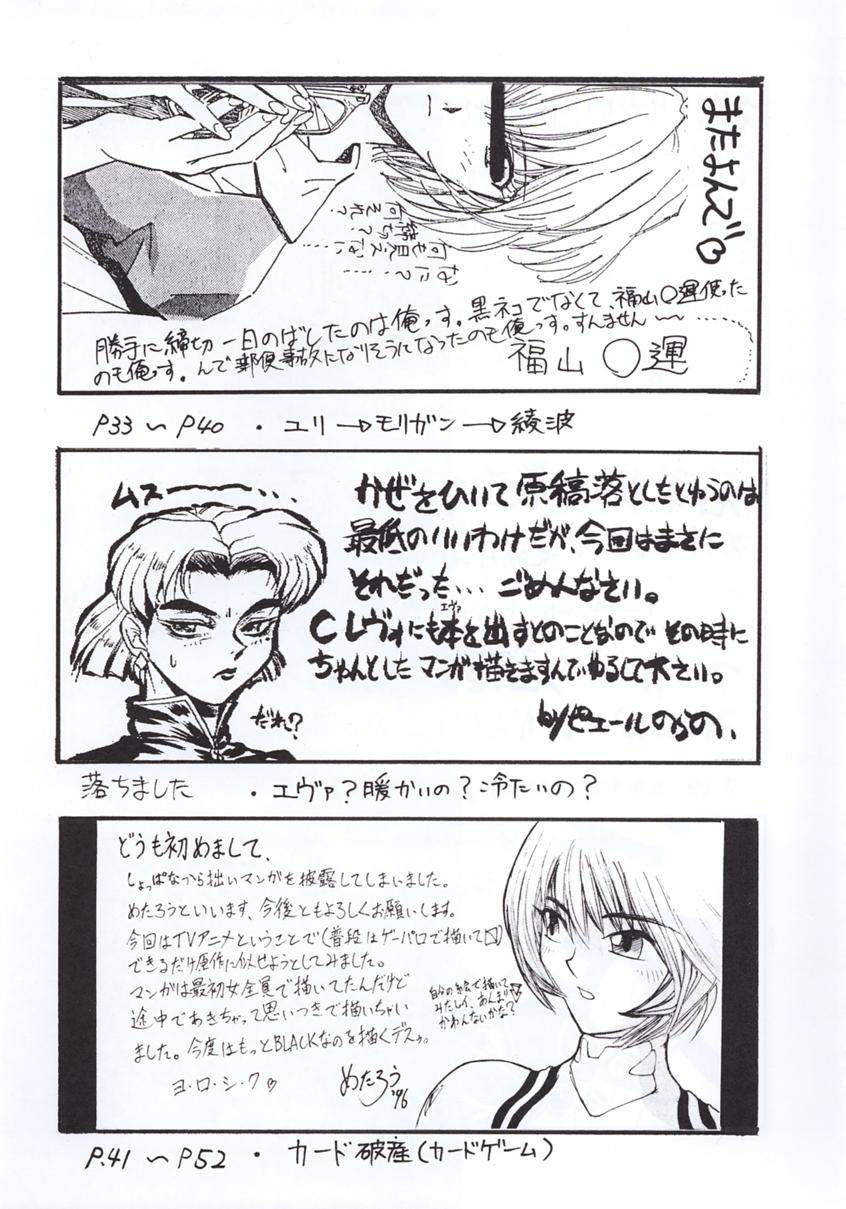 またよんで♡
何それ?
何も見えない
勝手に締切一日のばしたのは俺っす。黒ネコでなくて、福山〇運使った
のも俺っす。んで郵便事故になりそうになったのも俺っす。すんません〜
福山〇運
P33〜P40・ユリ→モリガン→綾波
ムスーー・・・
かぜをひいて原稿落としたとゆうのは
最低のいいわけだが、今回はまさに
それだった… ごめんなさい。
Cレヴォにもエヴァ本を出すとのことなので その時に
ちゃんとしたマンガ描きますんでゆるして下さい。
だれ?
落ちました ・エヴァ?暖かいの?冷たいの?
どうも初めまして、
しょっぱなから拙いマンガを披露してしまいました。
めたろうといいます、今後ともよろしくお願いします。
今回はTVアニメということで(普段はゲーパロで描いて)
できるだけ原作に似せようとしてみました。
マンガは最初女全員で描いてたんだけど
途中であきちゃって思いつきで描いちゃい
ました。今度はもっとBLACKなのを描くデスゥ。
ヨ・ロ・シ・ク♡
めたろう '96
自分の絵で描いて
みたしィ、あんまり
かわんないかな?
P.41〜P52・カード破産(カードゲーム)